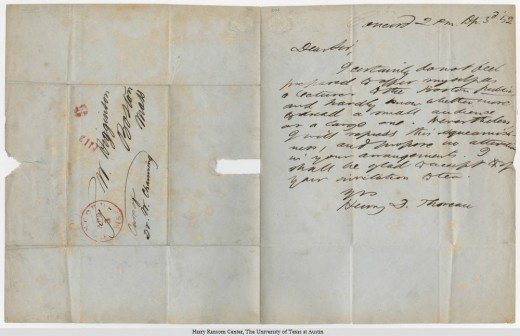 Mr Higginson
Boston
Mass
Care of
Dr W. Channing
Concord 2 Pm Ap 3d '52
Dear Sir,
I certainly do not feel
prepared to offer myself as
a lecturer to the Boston public
and hardly know whether more
to dread a small audience
or a large one. Nevertheless
I will repress this squeamish-
ness, and propose no alteration
in your arrangements. I
shall be glad to accept of
your invitation to tea.
Yrs
Henry D. Thoreau
Harry Ransom Center, The University of Texas at Austin.